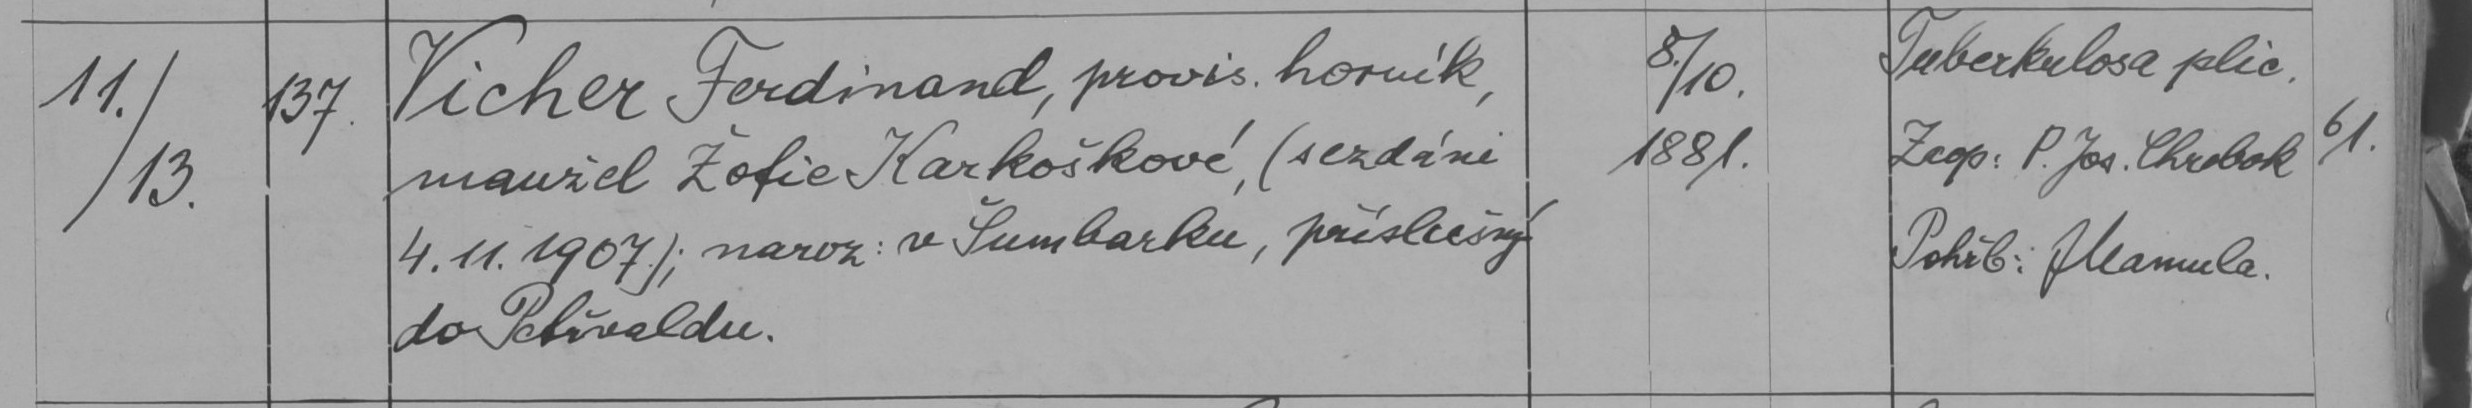 11./13.
137.
Vicher Ferdinand, provis. horník,
manžel Žofie Karkoškové, (sezdáni
4.11.1907); naroz: v Šumbarku, příslušný
do Petřvaldu.
8./10.
1881.
Tuberkulosa plic.
Zaop: P. Jos. Chrobok 6/1.
Pohřb: J Mamula.